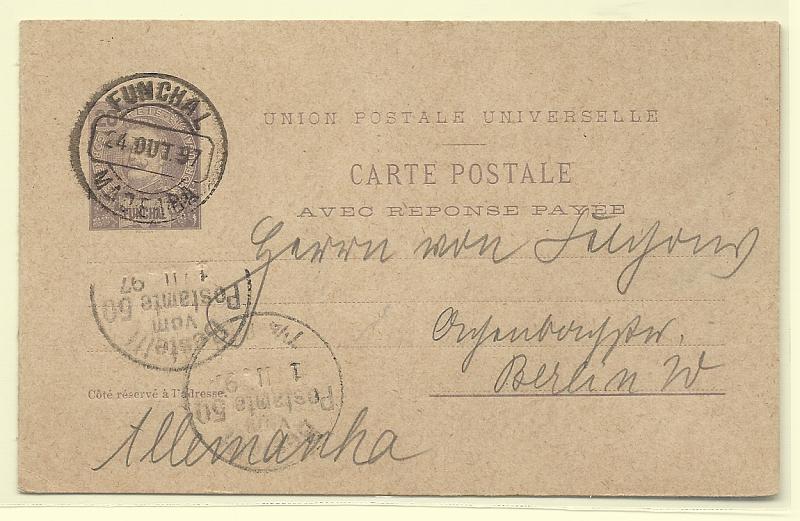 FUNCHAL
24 OUT. 97
MADEIRA
FUNCHAL
UNION POSTALE UNIVERSELLE
CARTE POSTALE
AVEC REPONSE PAYÉE
Herrn von
Achenbachstr.
Berlin W
Bestellt
vom
Postamte 50
1 11 97
vom
Postamte 50
1 11 97
Côté réservé à l'adresse.
Allemanha